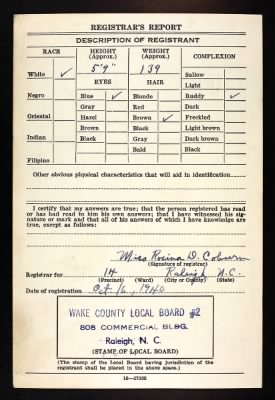 REGISTRAR'S REPORT
DESCRIPTION OF REGISTRANT
RACE HEIGHT (Approx.) WEIGHT (Approx.) COMPLEXION
White ✓ 5'9" 139 Sallow
EYES HAIR Light
Negro Blue ✓ Blonde Ruddy ✓
Gray Red Dark
Oriental Hazel Brown ✓ Freckled
Brown Black Light brown
Indian Black Gray Dark brown
Bald Black
Filipino
Other obvious physical characteristics that will aid in identification
I certify that my answers are true; that the person registered has read
or has had read to him his own answers; that I have witnessed his sig-
nature or mark and that all of his answers of which I have knowledge are
true, except as follows:
Miss Rosina D. Coburn
(Signature of registrar)
Registrar for 14 Raleigh N.C.
(Precinct) (Ward) (City or County) (State)
Date of registration Oct. 16, 1940
WAKE COUNTY LOCAL BOARD #2
808 COMMERCIAL BLDG.
Raleigh, N. C.
(STAMP OF LOCAL BOARD)
(The stamp of the Local Board having jurisdiction of the
registrant shall be placed in the above space.)